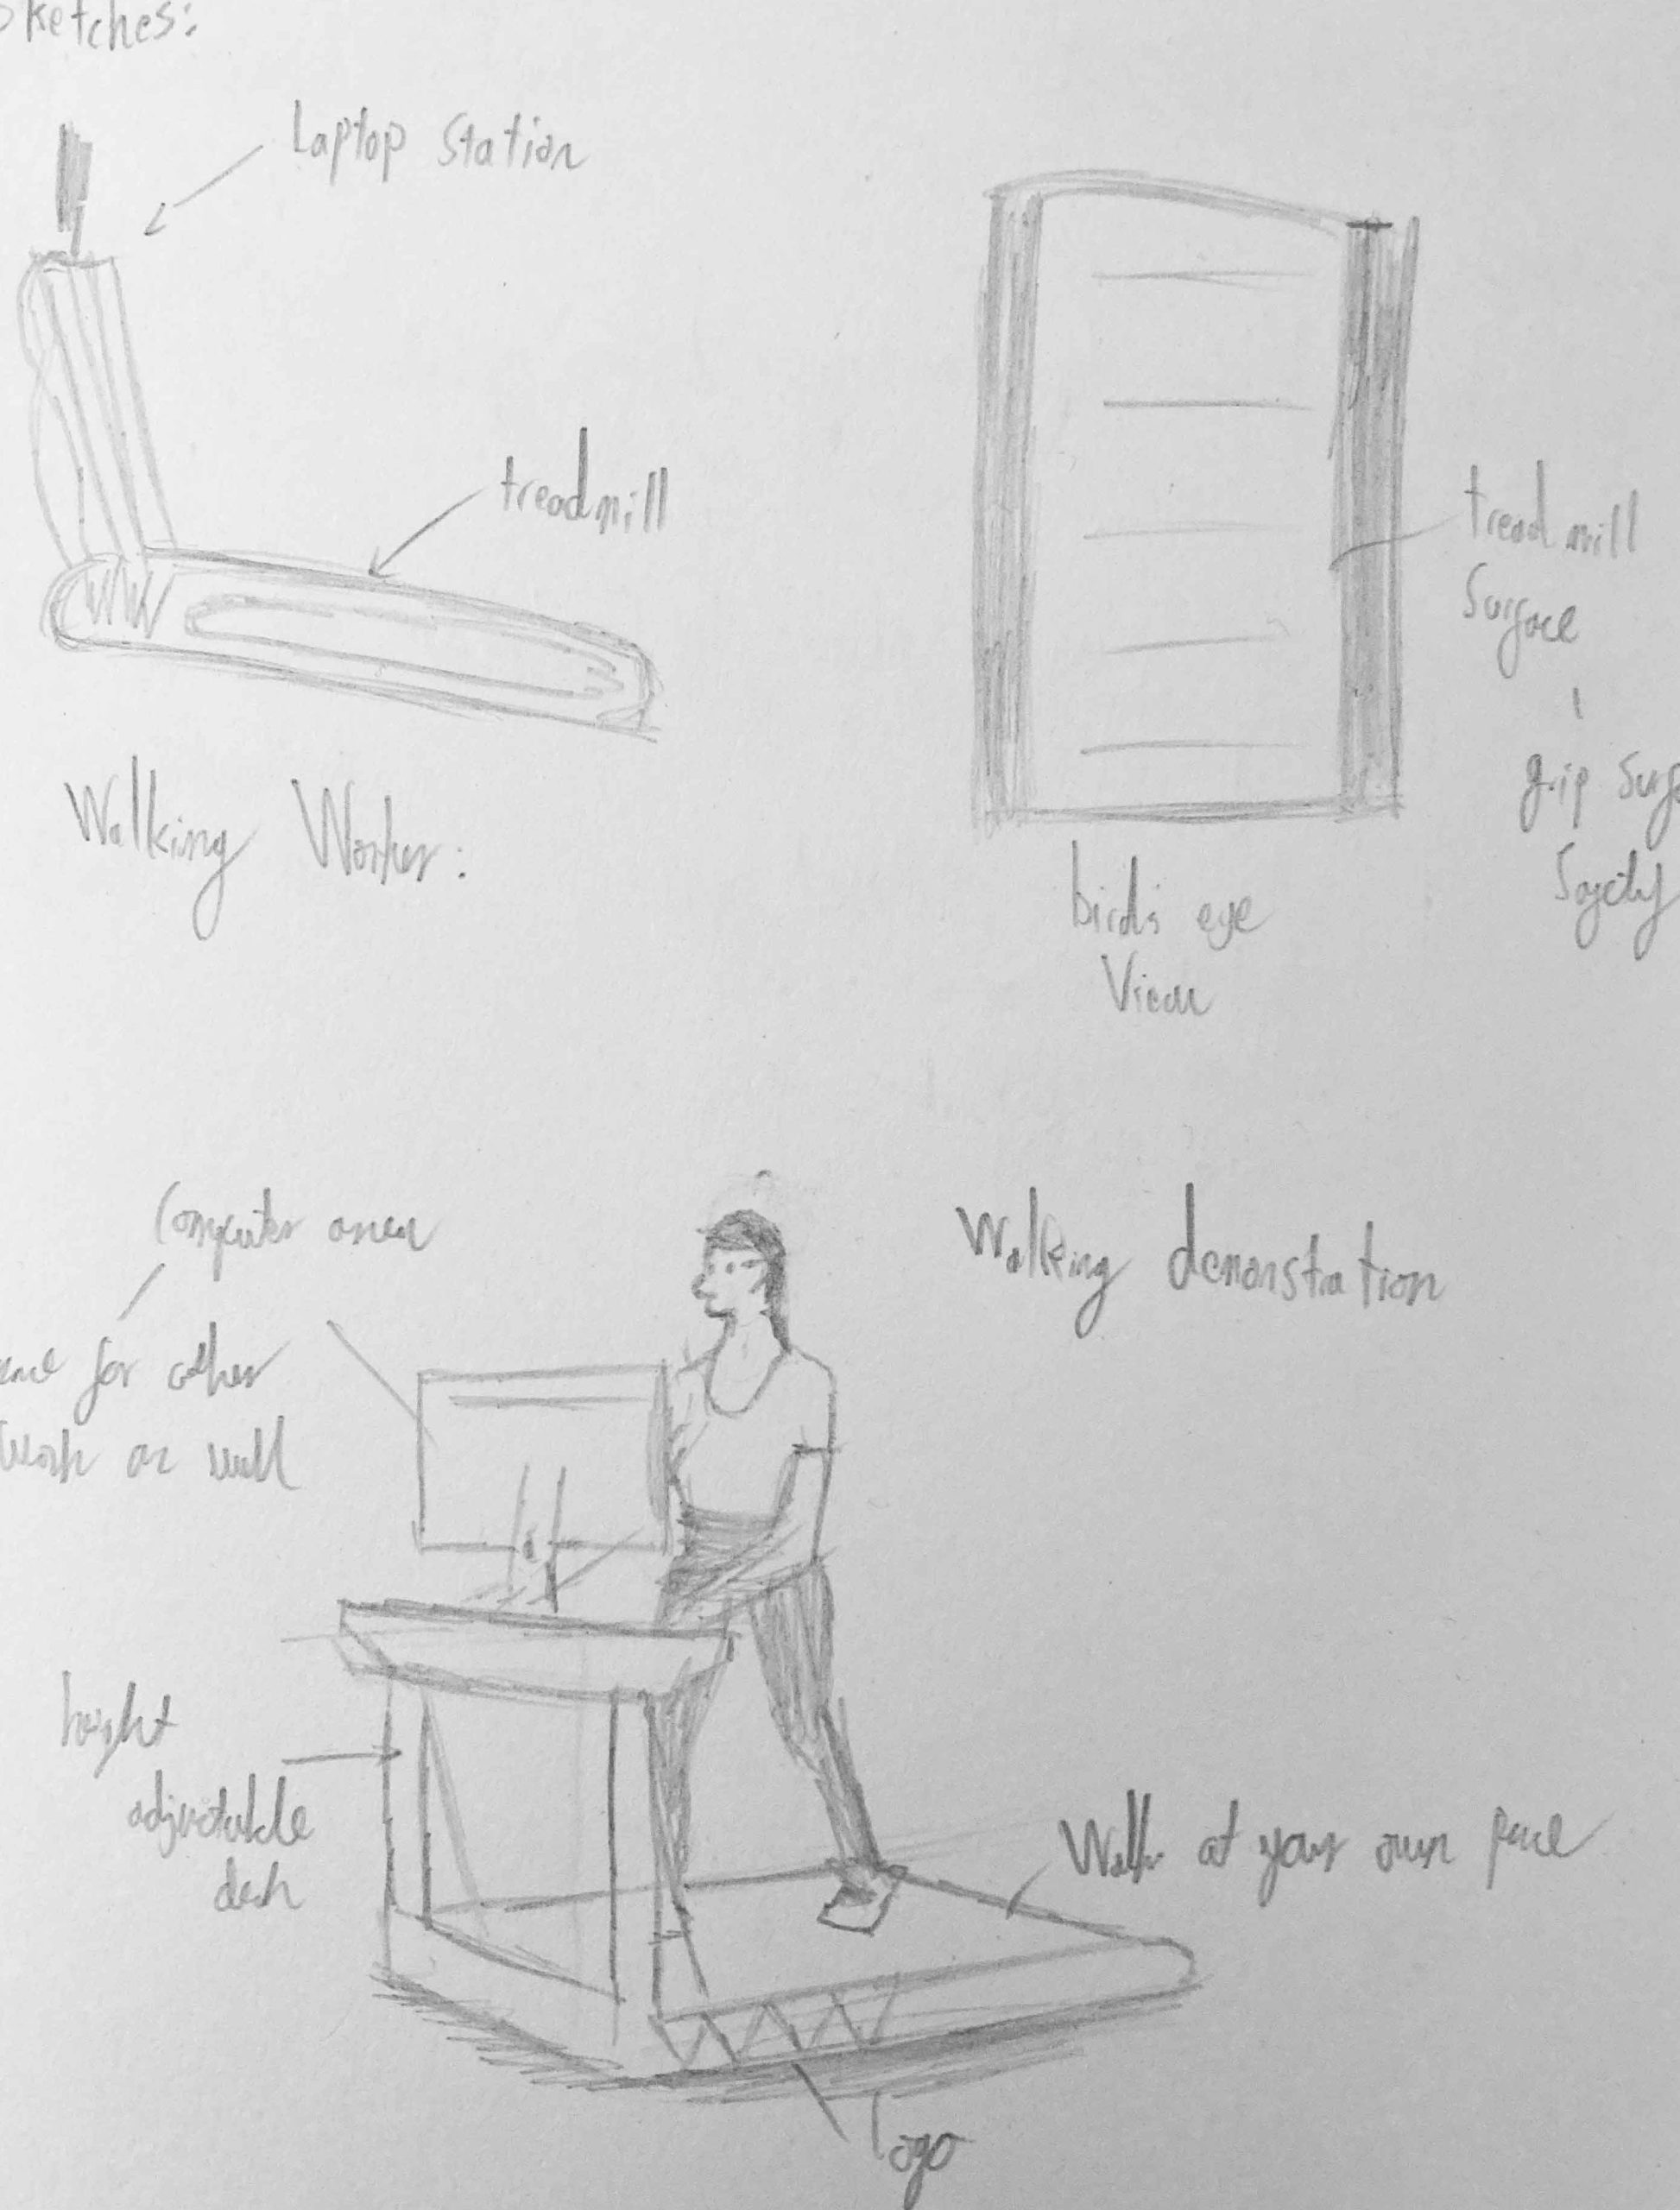 Sketches:
Laptop Station
treadmill
treadmill
Surface
grip surf
Safety
Walking Worker:
bird's eye
View
Computer area
for other
work as well
Walking demonstration
height
adjustable
desk
Walk at your own pace
logo